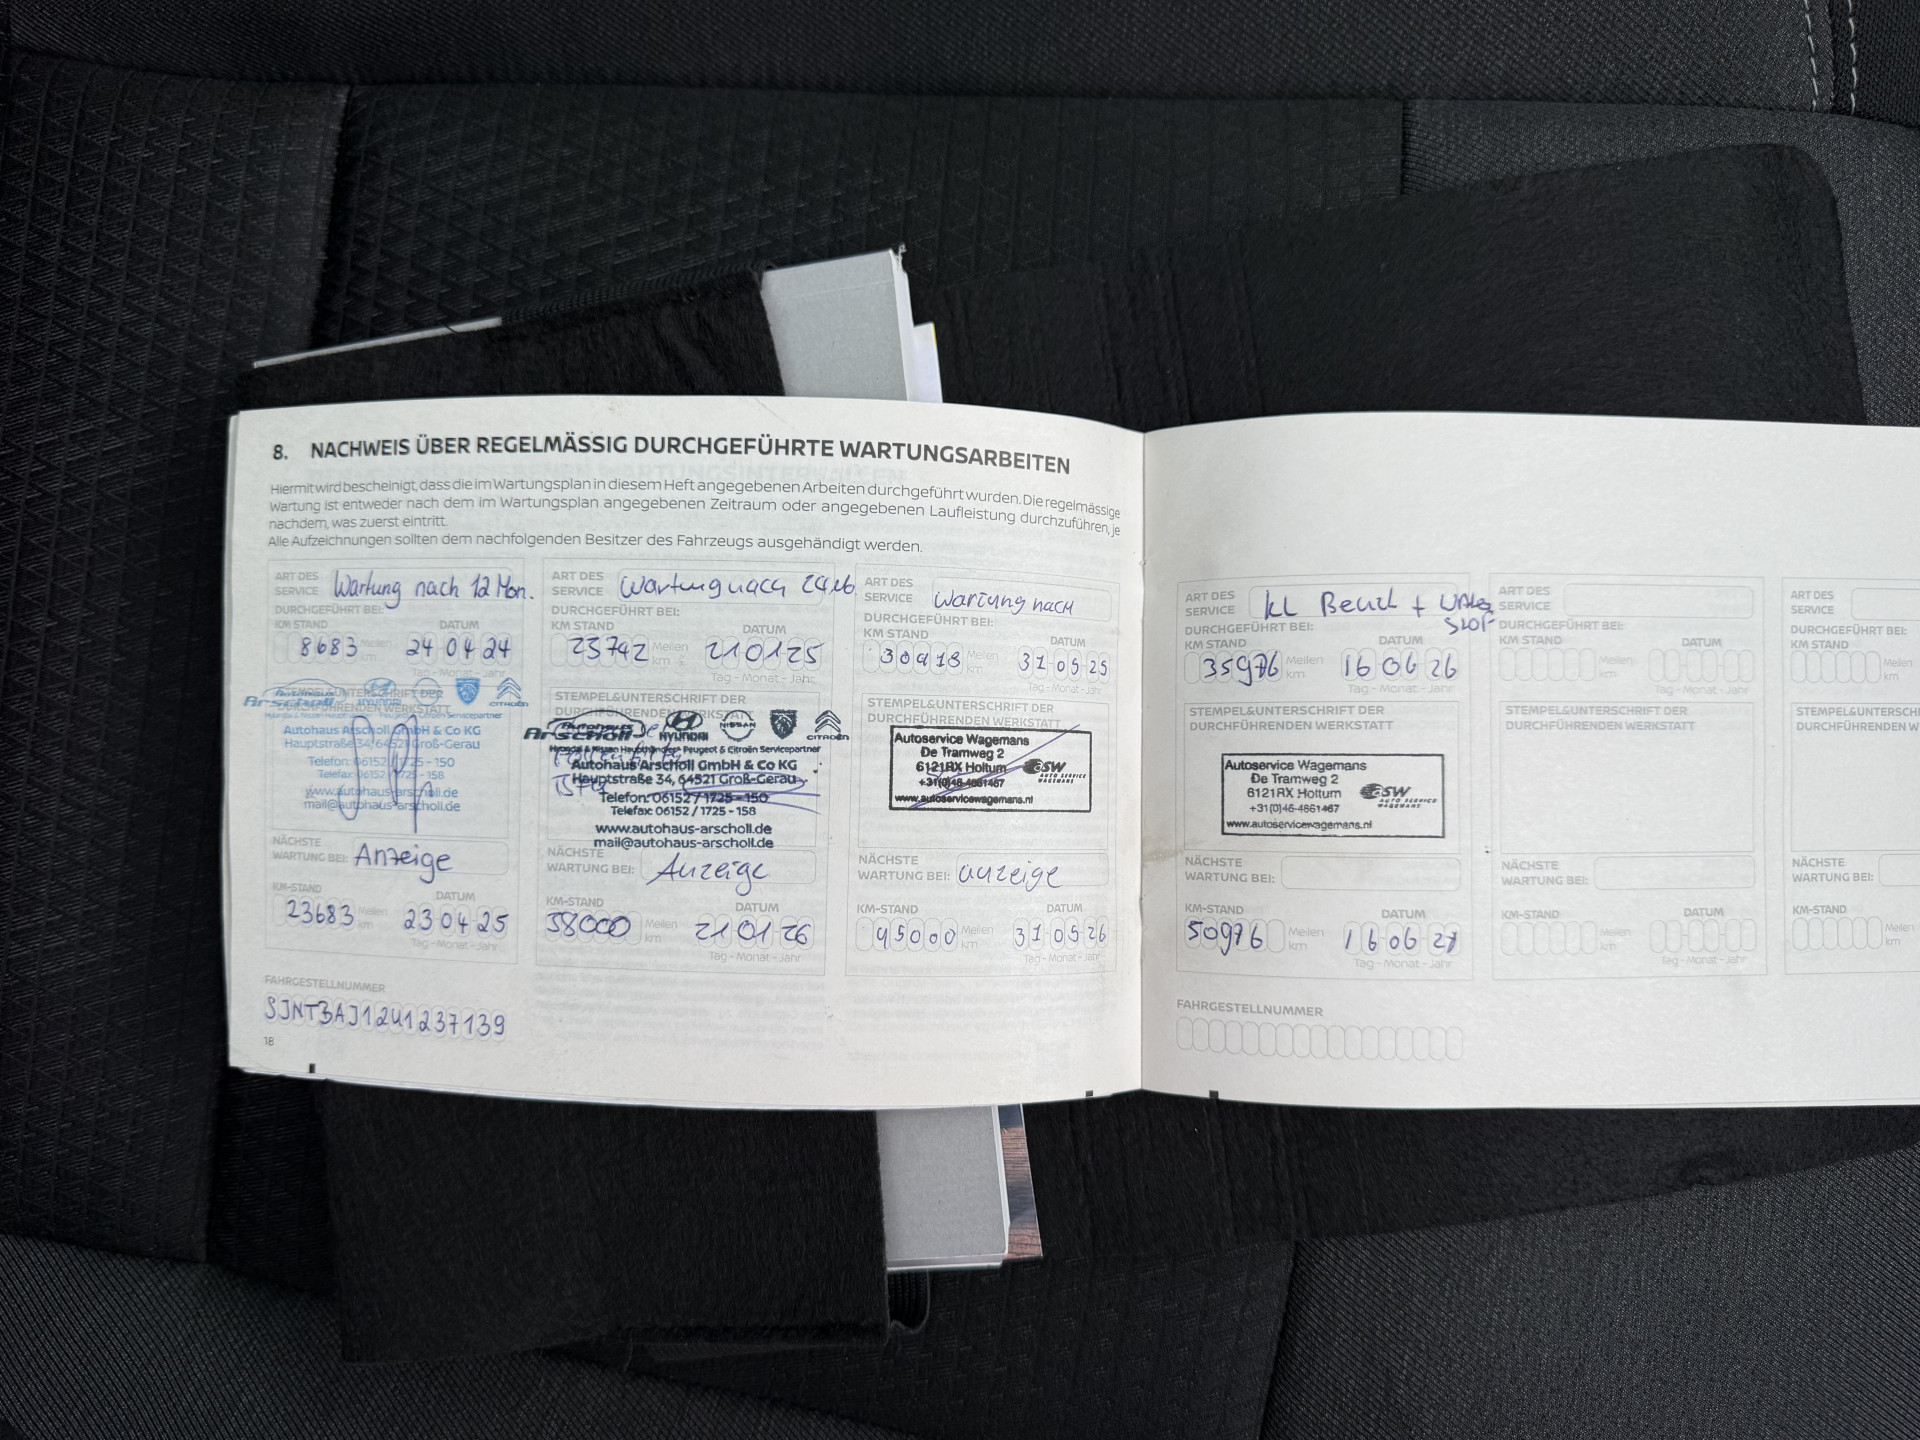 8. NACHWEIS ÜBER REGELMÄSSIG DURCHGEFÜHRTE WARTUNGSARBEITEN
Hiermit wird bescheinigt, dass die im Wartungsplan in diesem Heft angegebenen Arbeiten durchgeführt wurden. Die regelmässige
Wartung ist entweder nach dem im Wartungsplan angegebenen Zeitraum oder angegebenen Laufleistung durchzuführen, je
nachdem, was zuerst eintritt.
Alle Aufzeichnungen sollten dem nachfolgenden Besitzer des Fahrzeugs ausgehändigt werden.
ART DES
SERVICE
Wartung nach 12 Mon.
DURCHGEFÜHRT BEI:
KM STAND DATUM
8683 Meilen km 24 04 24
Tag - Monat - Jahr
STEMPEL&UNTERSCHRIFT DER
DURCHFÜHRENDEN WERKSTATT
Autohaus
Arscholl HYUNDAI CITROËN
Peugeot & Citroën Servicepartner
Autohaus Arscholl GmbH & Co KG
Hauptstraße 34, 64521 Groß-Gerau
Telefon: 06152 / 1725 - 150
Telefax: 06152 / 1725 - 158
www.autohaus-arscholl.de
mail@autohaus-arscholl.de
NÄCHSTE
WARTUNG BEI: Anzeige
KM-STAND DATUM
23683 Meilen km 23 04 25
Tag - Monat - Jahr
FAHRGESTELLNUMMER
SJNTBAJ12U1237139
18
ART DES
SERVICE
Wartung nach 24 Mo.
DURCHGEFÜHRT BEI:
KM STAND DATUM
23742 Meilen km 21 01 25
Tag - Monat - Jahr
STEMPEL&UNTERSCHRIFT DER
DURCHFÜHRENDEN WERKSTATT
Autohaus
Arscholl HYUNDAI NISSAN CITROËN
Hyundai & Nissan Haupthändler · Peugeot & Citroën Servicepartner
Autohaus Arscholl GmbH & Co KG
Hauptstraße 34, 64521 Groß-Gerau
Telefon: 06152 / 1725 - 150
Telefax: 06152 / 1725 - 158
www.autohaus-arscholl.de
mail@autohaus-arscholl.de
NÄCHSTE
WARTUNG BEI: Anzeige
KM-STAND DATUM
38000 Meilen km 21 01 26
Tag - Monat - Jahr
ART DES
SERVICE
Wartung nach
DURCHGEFÜHRT BEI:
KM STAND DATUM
30918 Meilen km 31 05 25
Tag - Monat - Jahr
STEMPEL&UNTERSCHRIFT DER
DURCHFÜHRENDEN WERKSTATT
Autoservice Wagemans
De Tramweg 2
6121RX Holtum
+31(0)46-4861467
www.autoservicewagemans.nl
ASW
AUTO SERVICE
WAGEMANS
NÄCHSTE
WARTUNG BEI: anzeige
KM-STAND DATUM
45000 Meilen km 31 05 26
Tag - Monat - Jahr
ART DES
SERVICE
kl Beurt +
DURCHGEFÜHRT BEI:
KM STAND DATUM
35976 Meilen km 16 06 26
Tag - Monat - Jahr
STEMPEL&UNTERSCHRIFT DER
DURCHFÜHRENDEN WERKSTATT
Autoservice Wagemans
De Tramweg 2
6121RX Holtum
+31(0)46-4861467
www.autoservicewagemans.nl
ASW
AUTO SERVICE
WAGEMANS
NÄCHSTE
WARTUNG BEI:
KM-STAND DATUM
50976 Meilen km 16 06 27
Tag - Monat - Jahr
FAHRGESTELLNUMMER
ART DES
SERVICE
DURCHGEFÜHRT BEI:
KM STAND DATUM
Meilen km
Tag - Monat - Jahr
STEMPEL&UNTERSCHRIFT DER
DURCHFÜHRENDEN WERKSTATT
NÄCHSTE
WARTUNG BEI:
KM-STAND DATUM
Meilen km
Tag - Monat - Jahr
ART DES
SERVICE
DURCHGEFÜHRT BEI:
KM STAND
Meilen km
STEMPEL&UNTERSCH
DURCHFÜHRENDEN W
NÄCHSTE
WARTUNG BEI:
KM-STAND
Meilen km